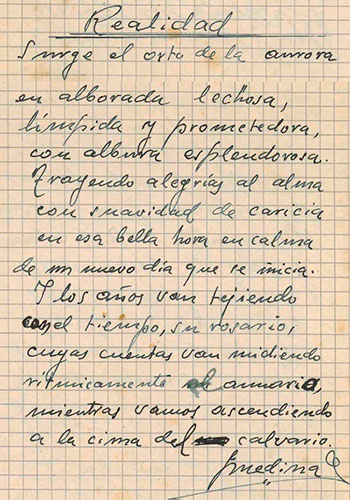 Realidad
Surge el orto de la aurora
en alborada lechosa,
límpida y prometedora,
con albura esplendorosa.
Trayendo alegrías al alma
con suavidad de caricia
en esa bella hora en calma
de un nuevo día que se inicia.
Y los años van tejiendo
en el tiempo, su rosario,
cuyas cuentas van midiendo
rítmicamente el annario,
mientras vamos ascendiendo
a la cima del calvario.
Jmedina